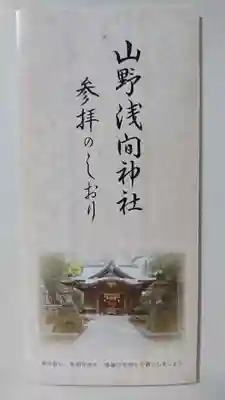 山野浅間神社
参拝のしおり